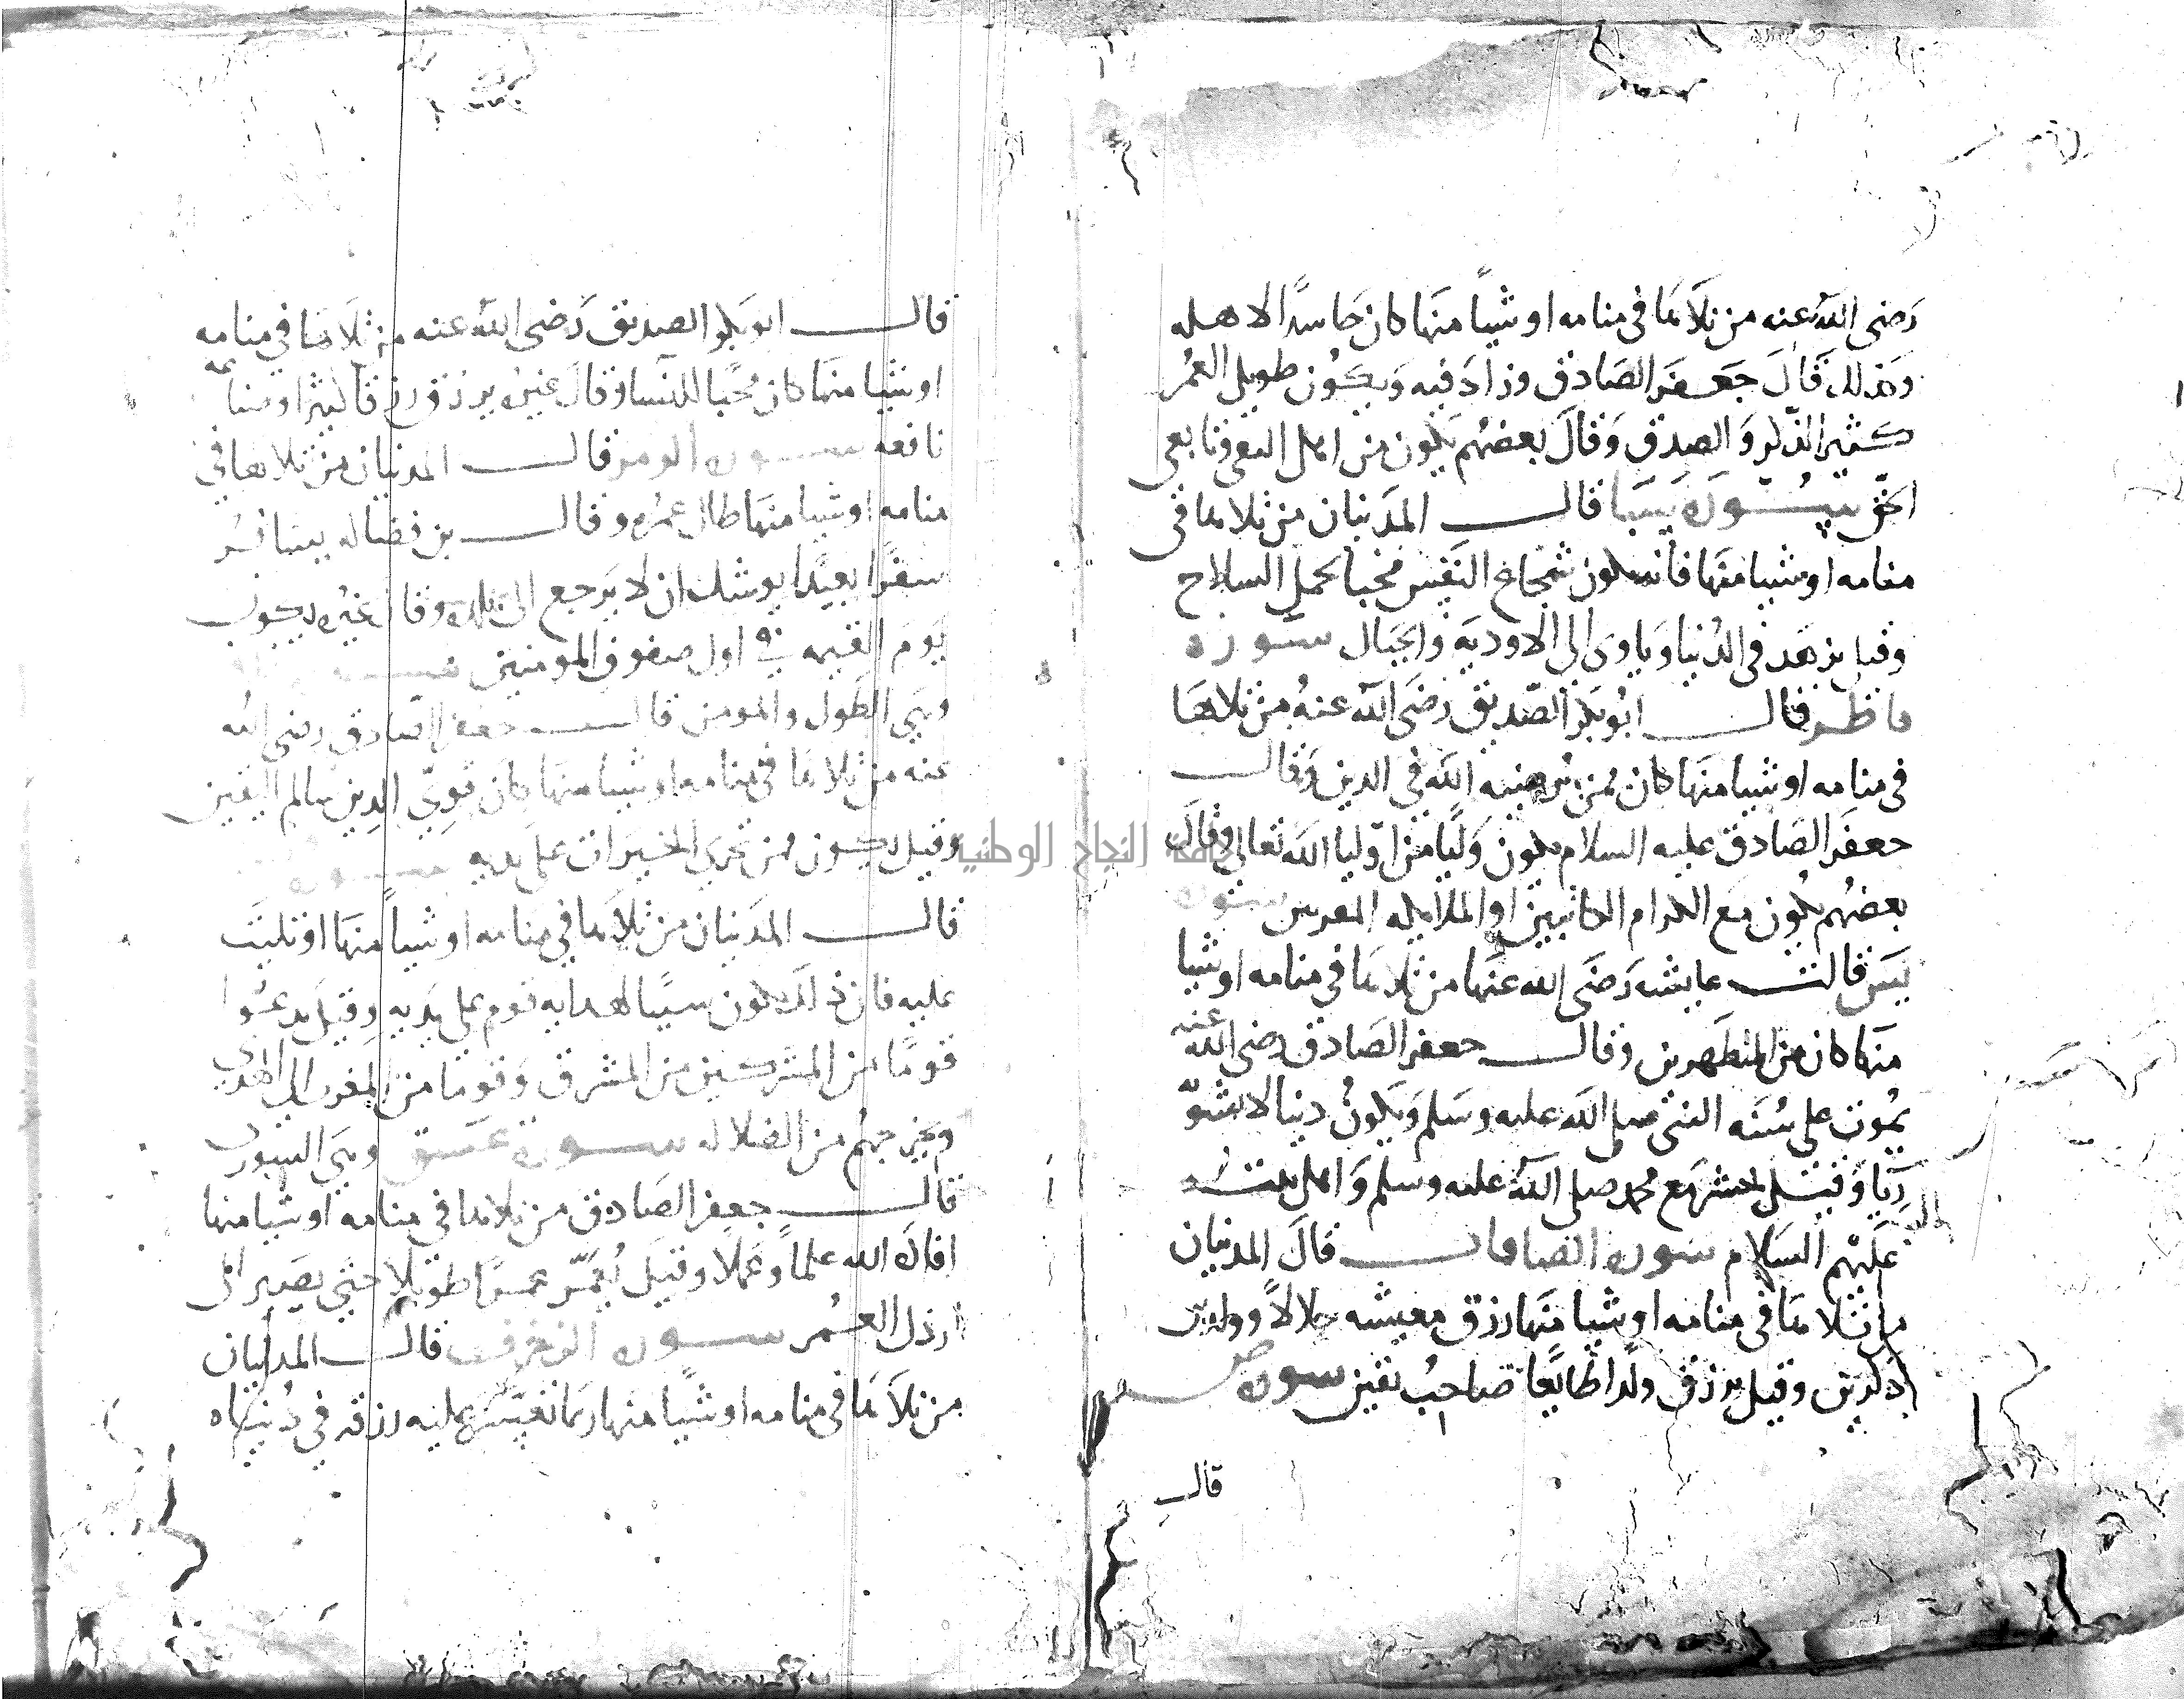 رضى الله عنه من تلاها فى منامه او شيا منها كان حاسدًا لاهله
وكذلك قال جعفر الصادق وزاد فيه ويكون طويل العمر
كثير الذكر والصدق وقال بعضهم يكون من اهل التقى وتابعى
الحق سورة سبا قالــ المدنيان من تلاها فى
منامه او شيا منها فانه يكون شجاع النفس محبا لحمل السلاح
وقيل يزهد فى الدنيا وياوى الى الاودية والجبال سورة
فاطر قالــ ابو بكر الصديق رضى الله عنه من تلاها
فى منامه او شيا منها كان ممن الله فى الدين وقالــ
جعفر الصادق عليه السلام يكون وليا من اوليا الله تعالى وقال
بعضهم يكون مع الكرام الكاتبين او الملايكه المقربين سورة
يس قالت عايشه رضى الله عنها من تلاها فى منامه او شيا
منها كان من المتطهرين وقالــ جعفر الصادق رضى الله عنه
يموت على سنه النبى صلى الله عليه وسلم ويكون دينا لا
ريا وقيل يحشر مع محمد صلى الله عليه وسلم واهل بيته
عليهم السلام سورة الصافات قال المدنيان
من تلاها فى منامه او شيا منها رزق معيشه حلالاً وولدين
ذكرين وقيل يرزق ولدا طايعا صاحب يقين سورة ص
قال
قالــ ابو بكر الصديق رضى الله عنه من تلاها فى منامه
او شيا منها كان محبا للنسا وقال غيره يرزق رزقا كثيرا
نافعه سورة الزمر قالــ المدنيان من تلاها فى
منامه او شيا منها طال عمره وقالــ بن فضاله يسافر
سفرًا بعيدًا يوشك ان لا يرجع الى بلده وقال غيره يكون
يوم القيمه فى اول صفوف المومنين
وهى الطول والمومن قالــ جعفر الصادق رضى الله
عنه من تلاها فى منامه او شيا منها كان قوى الدين سالم اليقين
وقيل يكون ممن تجرى الخيرات على يديه سورة
قالــ المدنيان من تلاها فى منامه او شياً منها او تليت
عليه فان ذلك يكون سببا لهدايه قوم على يديه وقيل يدعوا
قومًا من المشركين من المشرق وقوما من المغرب الى الهدى
ويخرجهم من الضلاله سورة عسق وهى الشورى
قالــ جعفر الصادق من تلاها فى منامه او شيا منها
افاده الله علماً وعملا وقيل يعمر عمرًا طويلا حتى يصير الى
ارذل العمر سورة الزخرف قالــ المدنيان
من تلاها فى منامه او شيًا منها ربما تعسر عليه رزقه فى دنياه
جامعة النجاح الوطنية